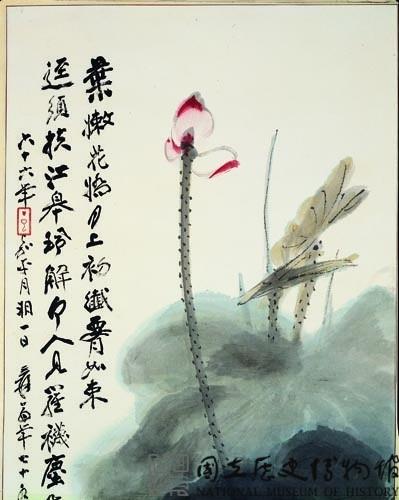 葉嫩花嬌月上初纖如束
逕須扶江皋珮解何人見羅襪塵
六十六年
月朔一日爰翁年七十
國立歷史博物館
NATIONAL MUSEUM OF HISTORY